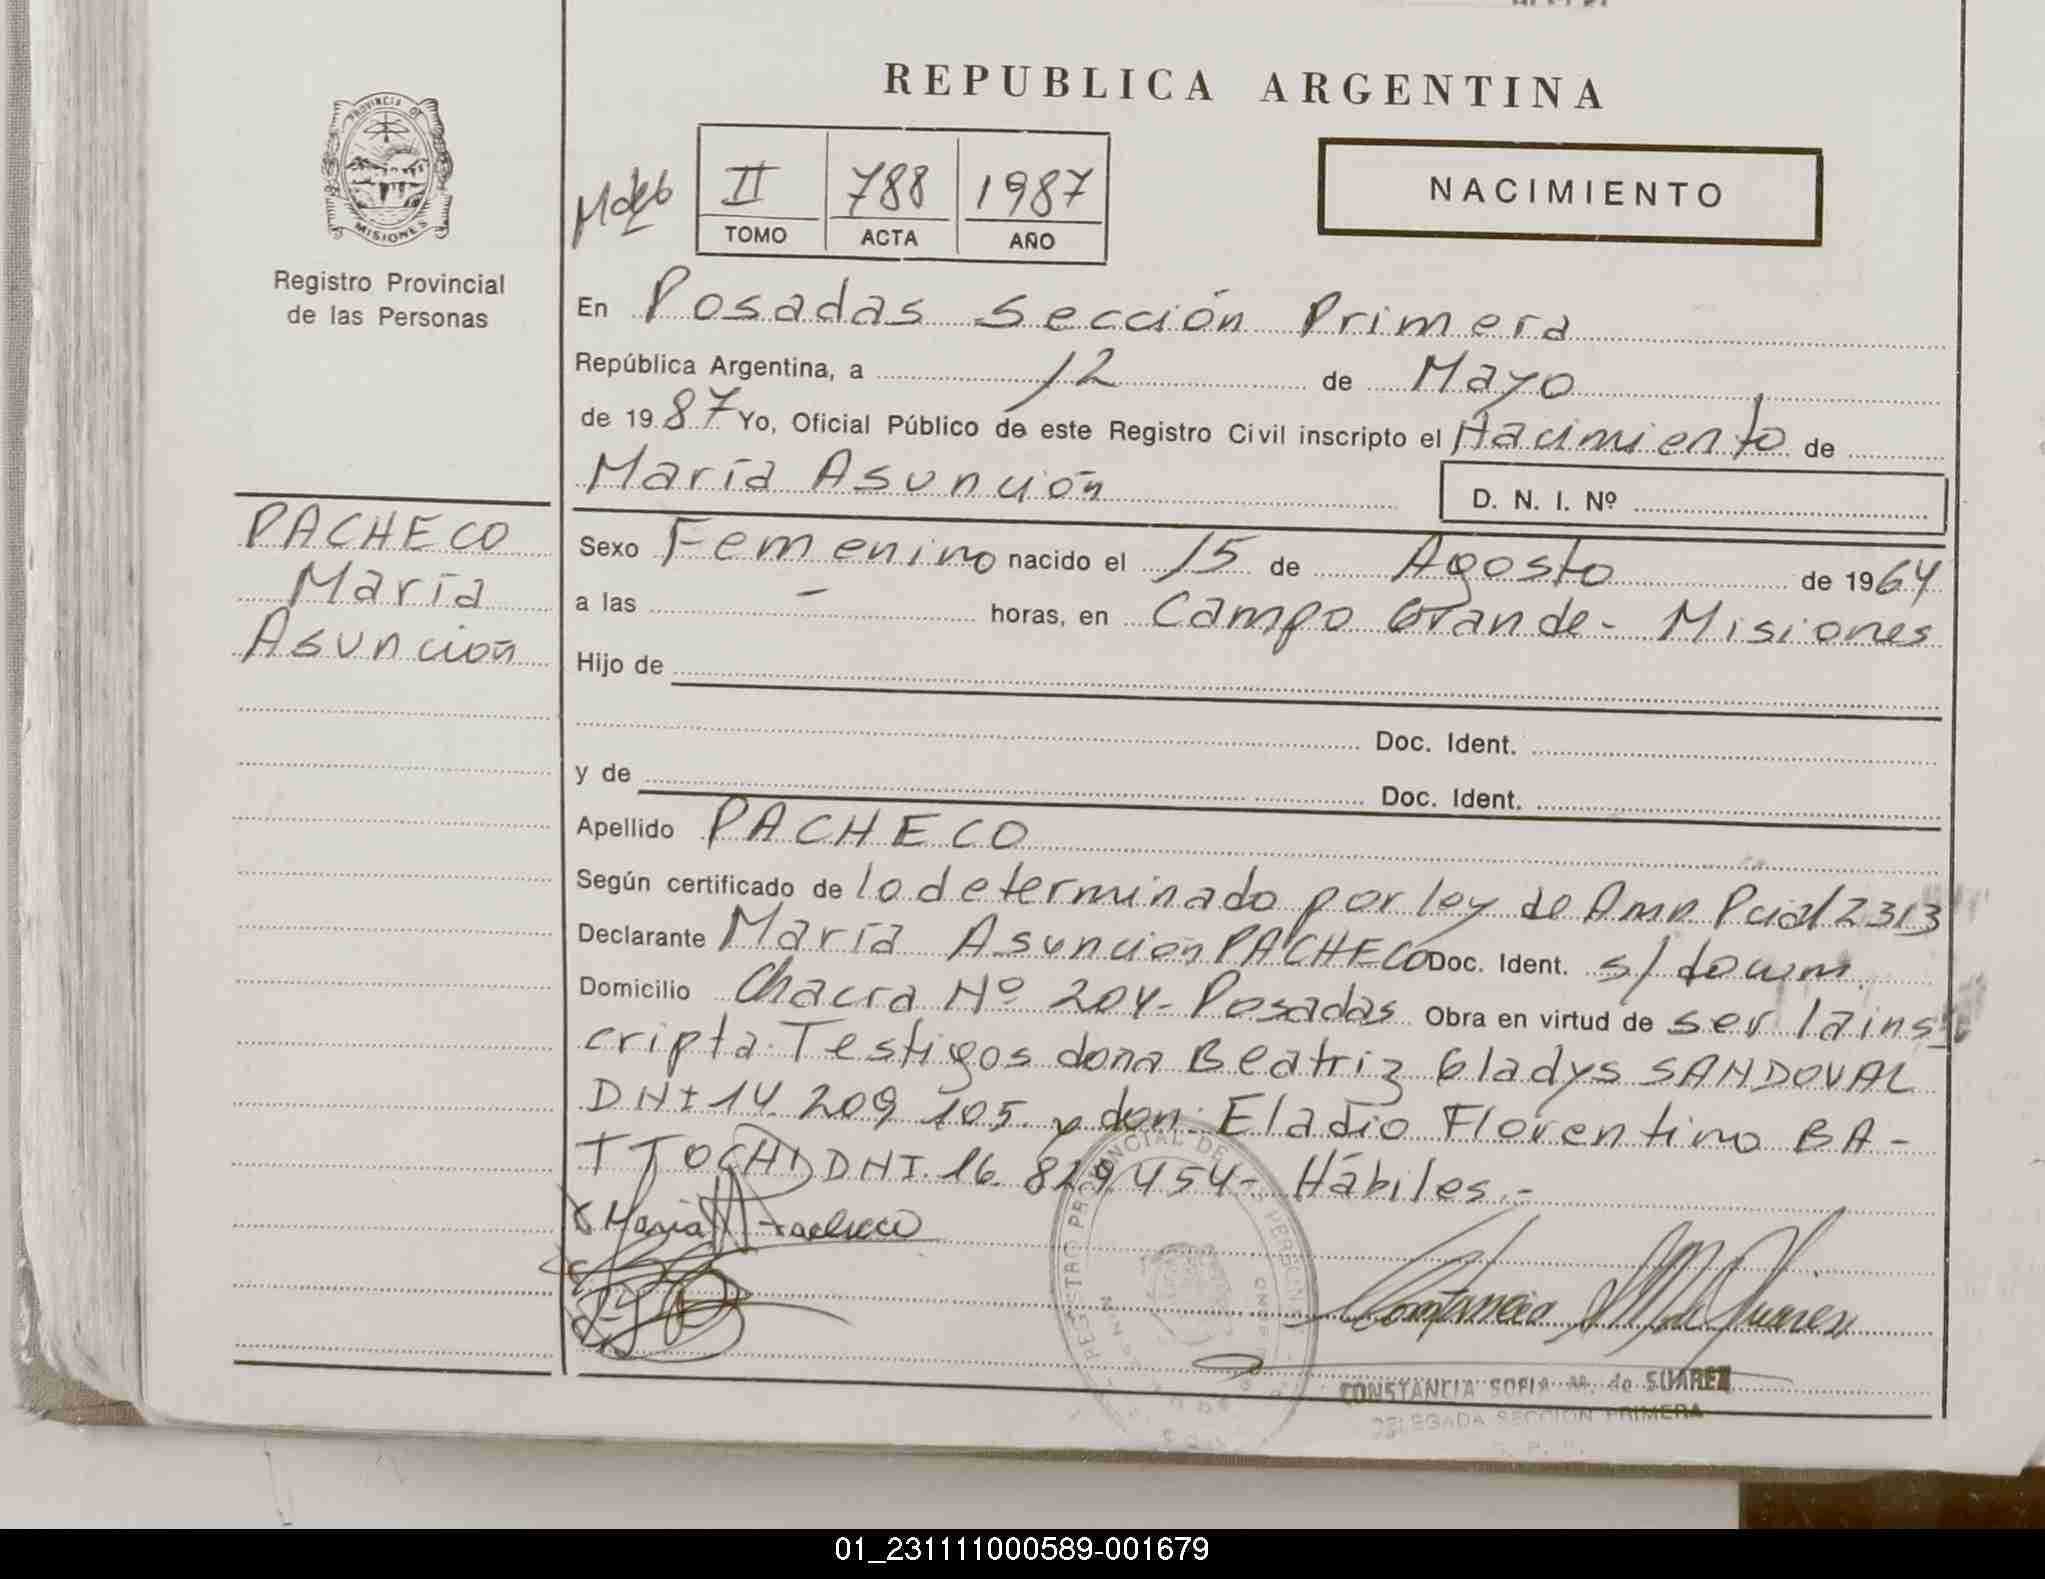 REPUBLICA ARGENTINA
PROVINCIA DE
MISIONES
Registro Provincial
de las Personas
II 788 1987
TOMO ACTA AÑO
NACIMIENTO
En Posadas Sección Primera
República Argentina, a 12 de Mayo
de 1987 Yo, Oficial Público de este Registro Civil inscripto el Nacimiento de
María Asunción
D. N. I. Nº
PACHECO
María
Asunción
Sexo Femenino nacido el 15 de Agosto de 1964
a las - horas, en Campo Grande - Misiones
Hijo de
Doc. Ident.
y de Doc. Ident.
Apellido PACHECO
Según certificado de lo determinado por ley de Amn. Pcial 2313
Declarante María Asunción PACHECO Doc. Ident. s/ docum.
Domicilio Chacra Nº 204 - Posadas Obra en virtud de ser la ins
cripta. Testigos doña Beatriz Gladys SANDOVAL
DNI 14.209.105 y don: Eladio Florentino BA-
TTOCHI DNI. 16.829.454 - Hábiles.-
x Maria A Pacheco
Constancia S M de Suarez
CONSTANCIA SOFIA M. de SUAREZ
DELEGADA SECCION PRIMERA
01_231111000589-001679